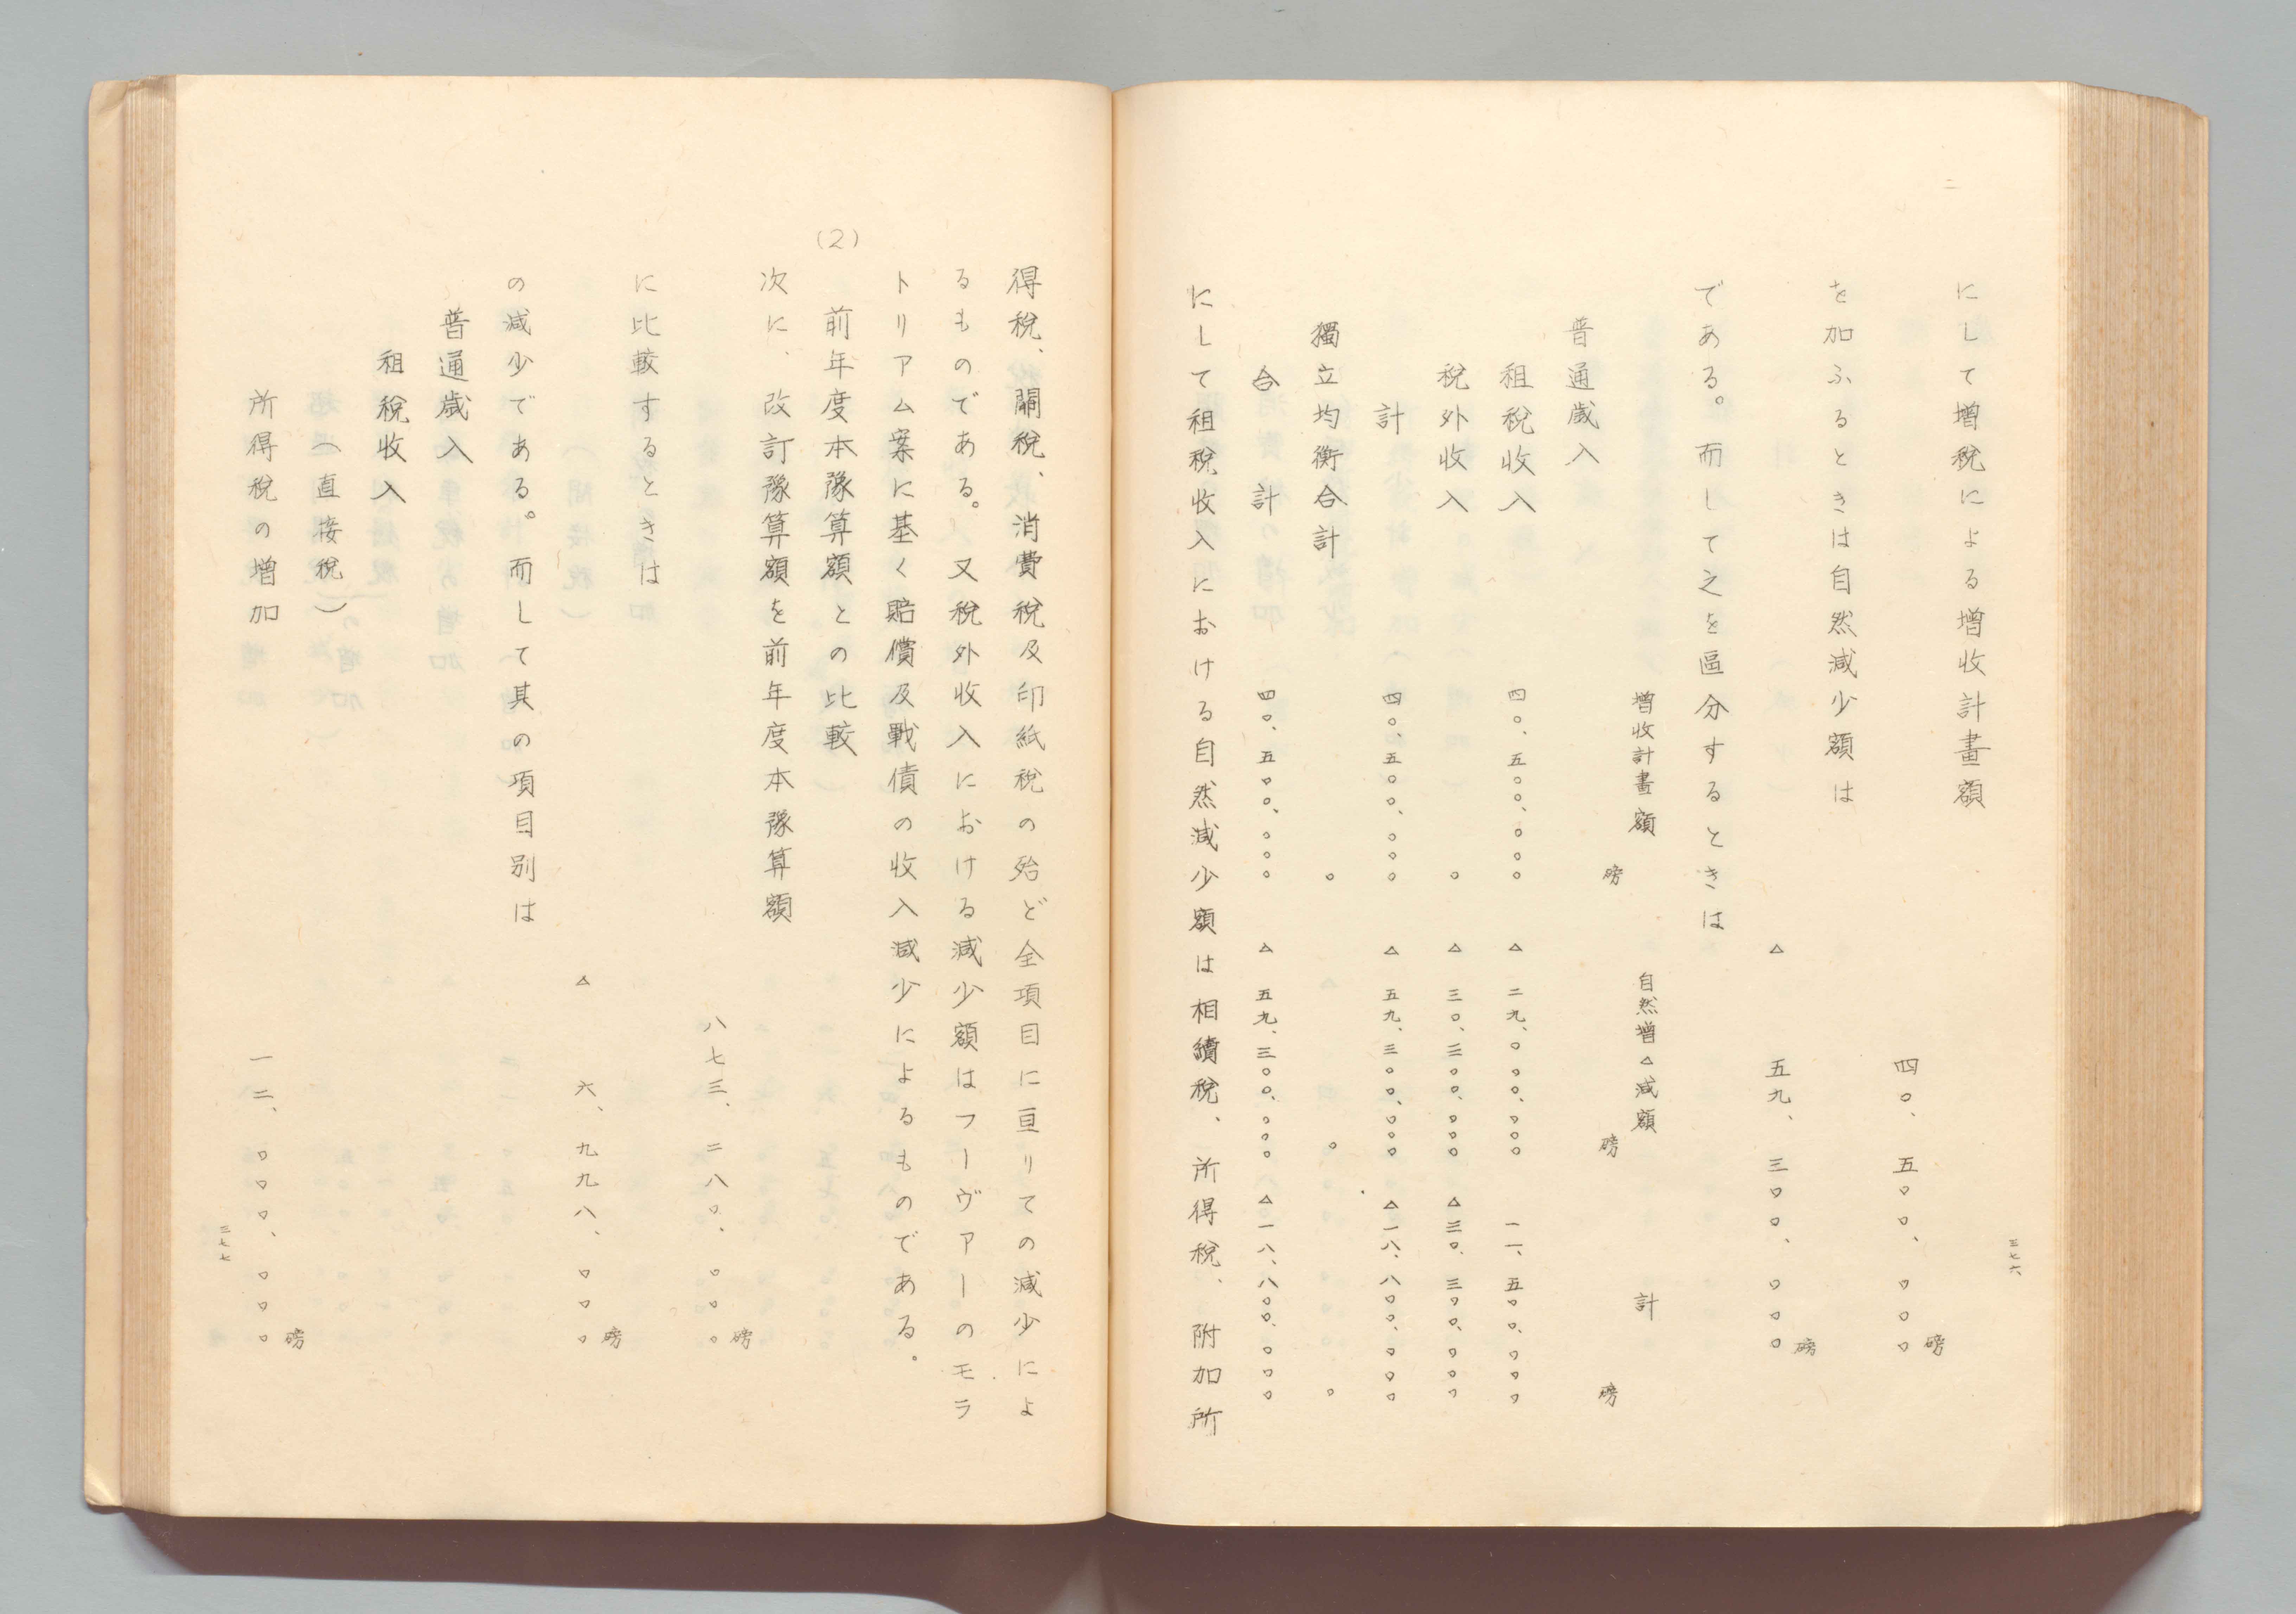 にして増税による増收計畫額
四〇、五〇〇、〇〇〇磅
を加ふるときは自然減少額は
△五九、三〇〇、〇〇〇磅
である。而して之を區分するときは
増收計畫額 自然増△減額 計
普通歲入 磅 磅 磅
租税收入 四〇、五〇〇、〇〇〇 △二九、〇〇〇、〇〇〇 一一、五〇〇、〇〇〇
税外收入 〇 △三〇、三〇〇、〇〇〇 △三〇、三〇〇、〇〇〇
計 四〇、五〇〇、〇〇〇 △五九、三〇〇、〇〇〇 △一八、八〇〇、〇〇〇
獨立均衡合計 〇 〇 〇
合計 四〇、五〇〇、〇〇〇 △五九、三〇〇、〇〇〇 △一八、八〇〇、〇〇〇
にして租税收入における自然減少額は相續税、所得税、附加所
三七六
得税、關税、消費税及印紙税の殆ど全項目に亘りての減少によ
るものである。又税外收入における減少額はフーヴァーのモラ
トリアム案に基く賠償及戰債の收入減少によるものである。
(2) 前年度本豫算額との比較
次に、改訂豫算額を前年度本豫算額
八七三、二八〇、〇〇〇磅
に比較するときは
△六、九九八、〇〇〇磅
の減少である。而して其の項目別は
普通歲入
租税收入
(直接税)
所得税の増加 一二、〇〇〇、〇〇〇磅
三七七